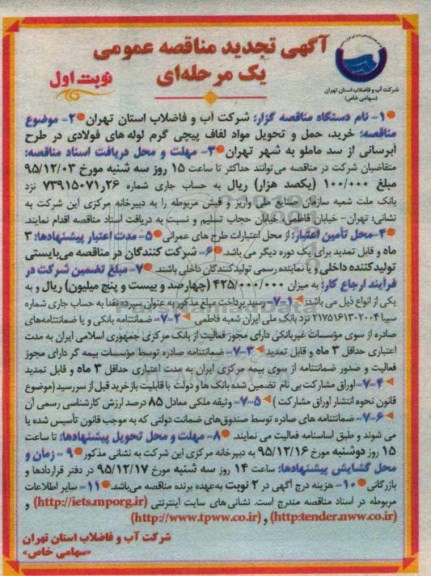 آگهی تجدید مناقصه عمومی
یک مرحله‌ای
نوبت اول
شرکت آب و فاضلاب استان تهران
(سهامی خاص)
۱- نام دستگاه مناقصه گزار: شرکت آب و فاضلاب استان تهران ۲- موضوع
مناقصه: خرید، حمل و تحویل مواد لفاف پیچی گرم لوله های فولادی در طرح
آبرسانی از سد ماملو به شهر تهران ۳- مهلت و محل دریافت اسناد مناقصه:
متقاضیان شرکت در مناقصه می توانند حداکثر تا ساعت ۱۵ روز سه شنبه مورخ ۹۵/۱۲/۰۳
مبلغ ۱۰۰/۰۰۰ (یکصد هزار) ریال به حساب جاری شماره ۷۳۹۱۵۰۷۱٫۲۶ نزد
بانک ملت شعبه سازمان صنایع ملی واریز و فیش مربوطه را به دبیرخانه مرکزی این شرکت به
نشانی: تهران - خیابان فاطمی - خیابان حجاب تسلیم و نسبت به دریافت اسناد مناقصه اقدام نمایند.
۴- محل تأمین اعتبار: از محل اعتبارات طرح های عمرانی ۵- مدت اعتبار پیشنهادها: ۳
ماه و قابل تمدید برای یک دوره دیگر می باشد ۶- شرکت کنندگان در مناقصه می‌بایستی
تولیدکننده داخلی و یا نماینده رسمی تولیدکنندگان داخلی باشند. ۷- مبلغ تضمین شرکت در
فرآیند ارجاع کار: به میزان ۴۲۵/۰۰۰/۰۰۰ (چهارصد و بیست و پنج میلیون) ریال و به
یکی از انواع ذیل می باشد: ۷-۱- رسید پرداخت مبلغ مذکور به عنوان سپرده نقدا به حساب جاری شماره
سیبا ۲۱۷۵۱۶۱۳۰۲۰۰۴ نزد بانک ملی ایران شعبه فاطمی ۷-۲- ضمانتنامه بانکی و یا ضمانتنامه‌های
صادره از سوی مؤسسات غیربانکی دارای مجوز فعالیت از بانک مرکزی جمهوری اسلامی ایران به مدت
اعتباری حداقل ۳ ماه و قابل تمدید ۷-۳- ضمانتنامه صادره توسط مؤسسات بیمه گر دارای مجوز
فعالیت و صدور ضمانتنامه از سوی بیمه مرکزی ایران به مدت اعتباری حداقل ۳ ماهه و قابل تمدید
۷-۴- اوراق مشارکت بی نام تضمین شده بانک ها و دولت با قابلیت بازخرید قبل از سررسید (موضوع
قانون نحوه انتشار اوراق مشارکت) ۷-۵- وثیقه ملکی معادل ۸۵ درصد ارزش کارشناسی رسمی آن
۷-۶- ضمانتنامه های صادره توسط صندوق‌های ضمانت دولتی که به موجب قانون تأسیس شده یا
می شوند و طبق اساسنامه فعالیت می نمایند. ۸- مهلت و محل تحویل پیشنهادها: تا ساعت
۱۵ روز دوشنبه مورخ ۹۵/۱۲/۱۶ به دبیرخانه مرکزی این شرکت به نشانی مذکور ۹- زمان و
محل گشایش پیشنهادها: ساعت ۱۴ روز سه شنبه مورخ ۹۵/۱۲/۱۷ در دفتر قراردادها و
بازرگانی ۱۰- هزینه درج آگهی در ۲ نوبت به عهده برنده مناقصه می‌باشد. ۱۱- سایر اطلاعات
مربوطه در اسناد مناقصه مندرج است. نشانی های سایت اینترنتی (http://iets.mporg.ir) و
(http:tender.nww.co.ir) و (http://www.tpww.co.ir)
شرکت آب و فاضلاب استان تهران
«سهامی خاص»